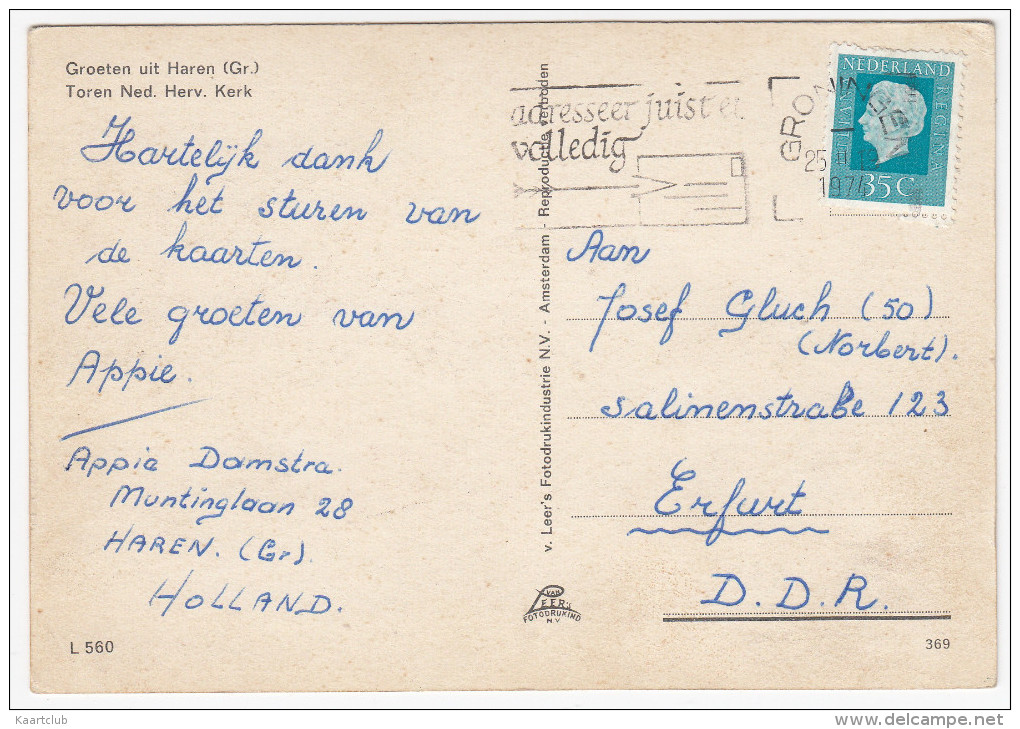 Groeten uit Haren (Gr.)
Toren Ned. Herv. Kerk
Hartelijk dank
voor het sturen van
de kaarten.
Vele groeten van
Appie.
Appie Damstra.
Muntinglaan 28
HAREN. (Gr).
HOLLAND.
L 560
v. Leer's Fotodrukindustrie N.V. - Amsterdam - Reproductie verboden
adresseer juist en
volledig
GRONINGEN
25
NEDERLAND
JULIANA REGINA
35 C
Aan
Josef Gluch (50)
(Norbert).
Salinenstraße 123
Erfurt
D. D. R.
VAN
LEER's
FOTODRUKIND
N.V.
369
Kaartclub
www.delcampe.net